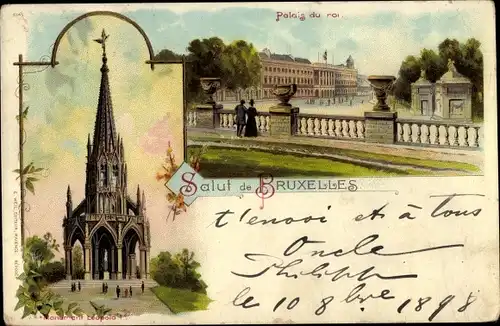 Palais du roi
Salut de BRUXELLES
t'envoi et à tous
Oncle
Philippe
le 10 8bre 1898
Monument Léopold I